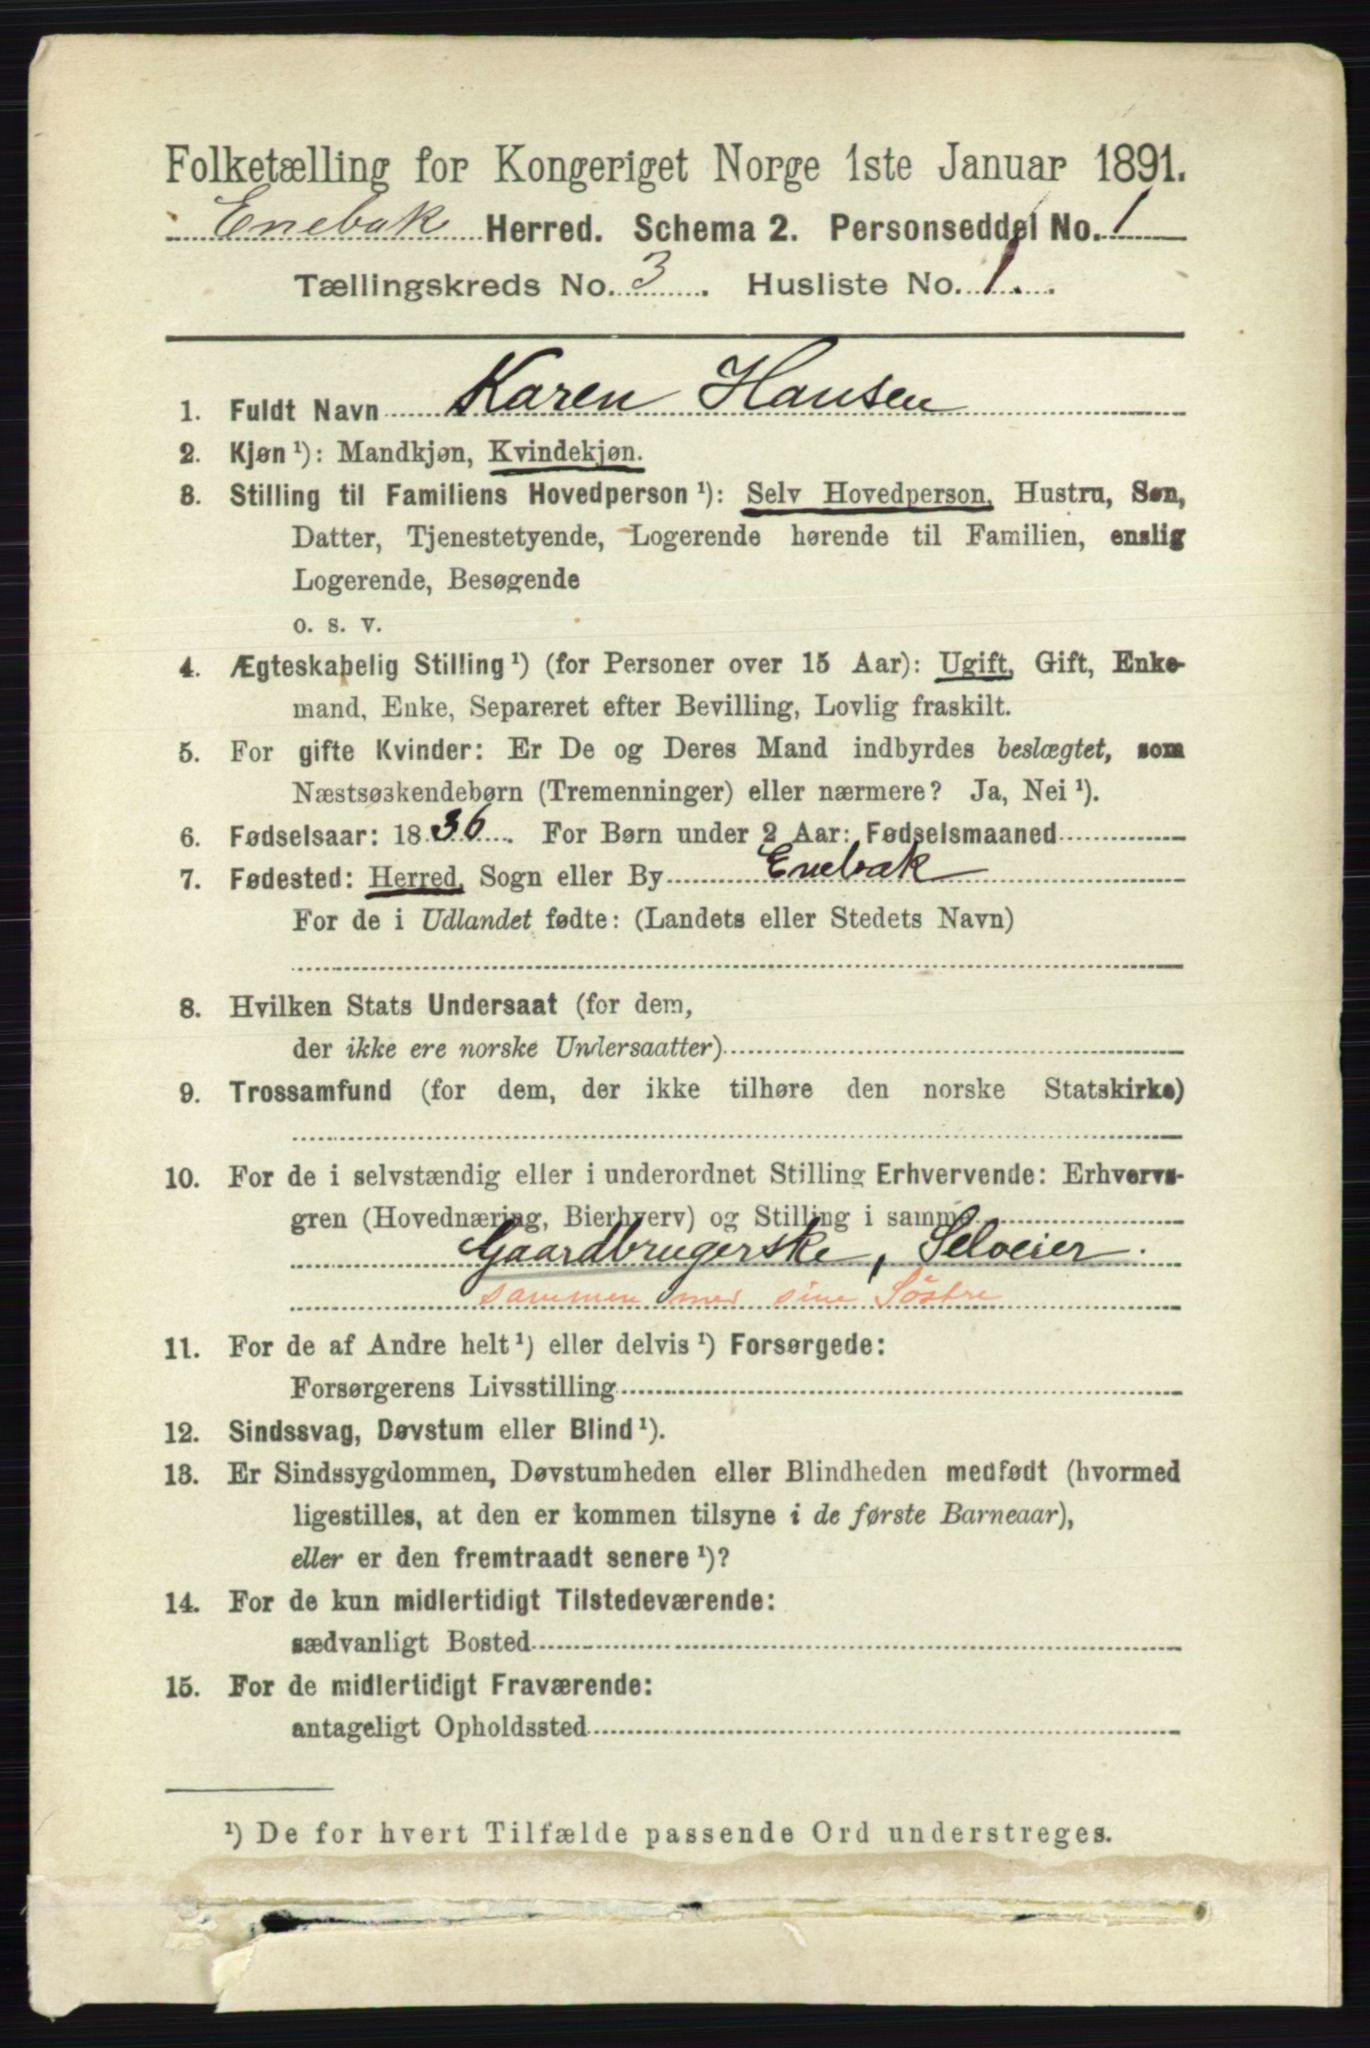 Folketælling for Kongeriget Norge 1ste Januar 1891.
Enebak Herred. Schema 2. Personseddel No. 1
Tællingskreds No. 3. Husliste No. 1.
1. Fuldt Navn Karen Hansen
2. Kjøn ¹): Mandkjøn, Kvindekjøn.
3. Stilling til Familiens Hovedperson ¹): Selv Hovedperson, Hustru, Søn,
Datter, Tjenestetyende, Logerende hørende til Familien, enslig
Logerende, Besøgende
o. s. v.
4. Ægteskabelig Stilling ¹) (for Personer over 15 Aar): Ugift, Gift, Enke-
mand, Enke, Separeret efter Bevilling, Lovlig fraskilt.
5. For gifte Kvinder: Er De og Deres Mand indbyrdes beslægtet, som
Næstsøskendebørn (Tremenninger) eller nærmere? Ja, Nei ¹).
6. Fødselsaar: 1836. For Børn under 2 Aar: Fødselsmaaned
7. Fødested: Herred, Sogn eller By Enebak
For de i Udlandet fødte: (Landets eller Stedets Navn)
8. Hvilken Stats Undersaat (for dem,
der ikke ere norske Undersaatter)
9. Trossamfund (for dem, der ikke tilhøre den norske Statskirke)
10. For de i selvstændig eller i underordnet Stilling Erhvervende: Erhvervs-
gren (Hovednæring, Bierhverv) og Stilling i samme
Gaardbrugerske, Selveier.
sammen med sine Söstre
11. For de af Andre helt ¹) eller delvis ¹) Forsørgede:
Forsørgerens Livsstilling
12. Sindssvag, Døvstum eller Blind ¹).
13. Er Sindssygdommen, Døvstumheden eller Blindheden medfødt (hvormed
ligestilles, at den er kommen tilsyne i de første Barneaar),
eller er den fremtraadt senere ¹)?
14. For de kun midlertidigt Tilstedeværende:
sædvanligt Bosted
15. For de midlertidigt Fraværende:
antageligt Opholdssted
¹) De for hvert Tilfælde passende Ord understreges.